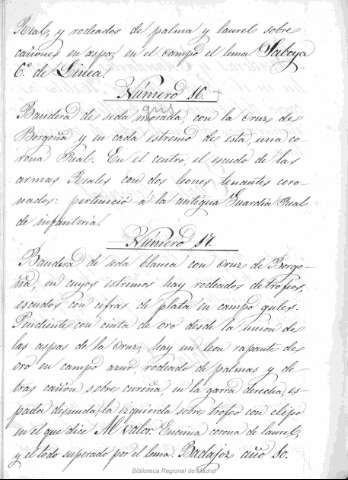 Real, y rodeados de palma y laurel sobre
cañones en aspa, en el campo el lema Saboya
6º de Linea.
Número 16.
gris
Bandera de seda morada, con la Cruz de
Borgoña y en cada estremo de esta, una co-
rona Real. En el centro, el escudo de las
armas Reales con dos leones tenantes coro-
nados: perteneció á la antigua Guardia Real
de infanteria.
Número 17.
Bandera de seda blanca con Cruz de Borgo-
ña, en cuyos estremos hay rodeados de trofeos,
escudos con cifras de plata en campo gules.
Pendiente con cinta de oro desde la union de
las aspas de la Cruz, hay un leon rapante de
oro en campo azul, rodeado de palmas y de-
tras cañón sobre cureña, en la garra derecha es-
pada desnuda, la izquierda sobre trofeo con elipse
en el que dice Al Valor. Encima corona de laurel,
y el todo superado por el lema Badajoz año 10.
Biblioteca Regional de Madrid